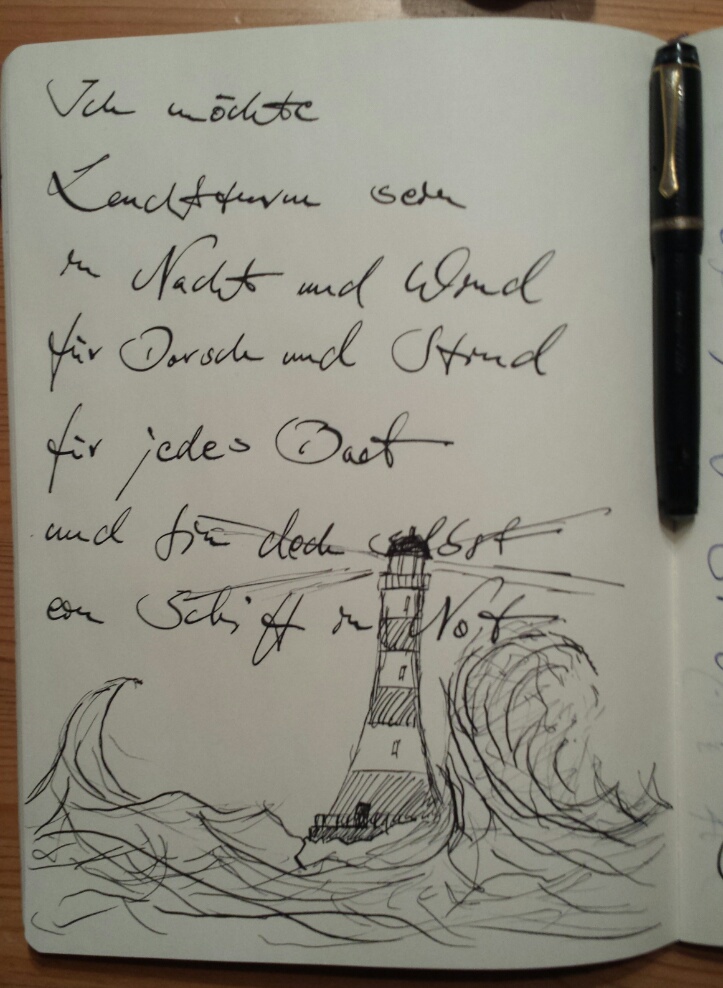 Ich möchte
Leuchtturm sein
in Nacht und Wind
für Dorsch und Stind
für jedes Boot
und bin doch selbst
ein Schiff in Not